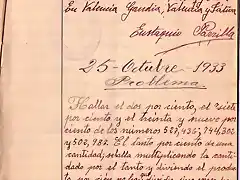 En Valencia Gandia, Valencia y Játiva
Eustaquio Parrilla
25-Octubre-1933
Problema
Hallar el dos por ciento, el siete
por ciento y el treinta y nueve por
ciento de los números 527,435, 794,302
y 503,987. El tanto por ciento de una
cantidad, se halla multiplicando la canti-
dad por el tanto y dividiendo el produc-